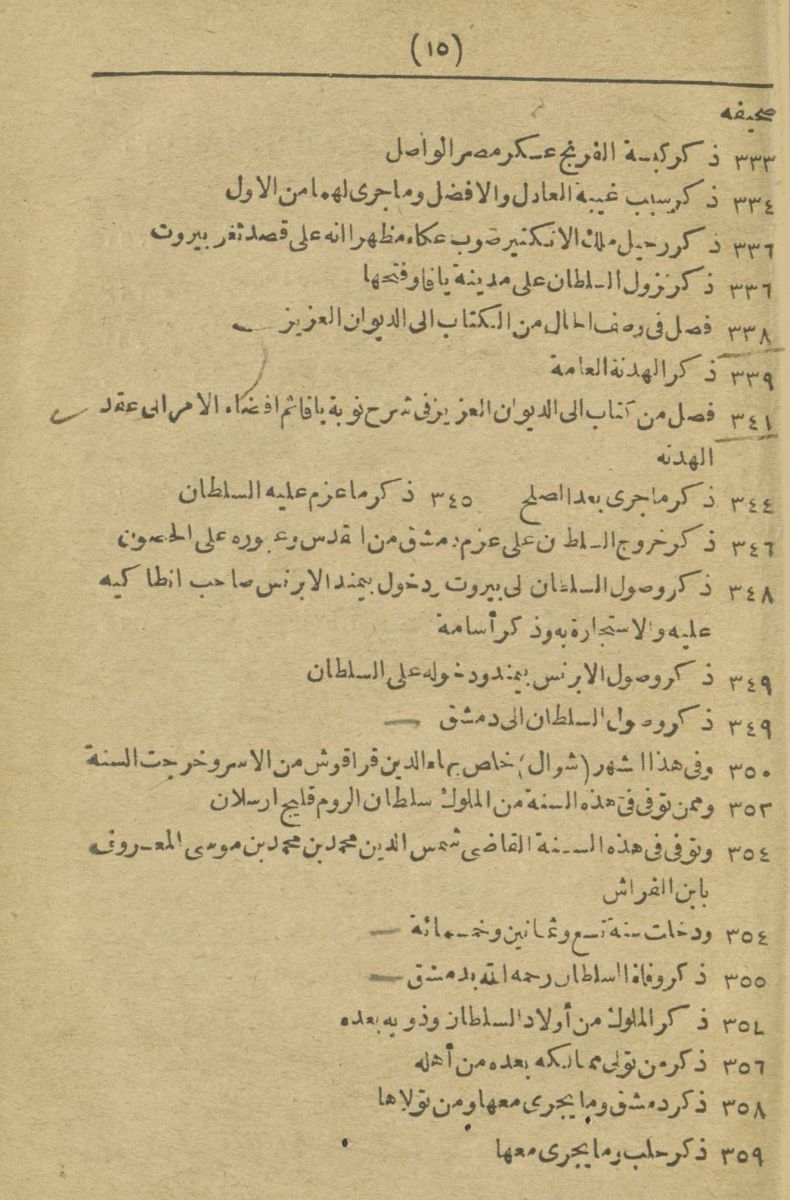 (١٥)
صحيفه
٣٣٣ ذكر كبسة الفرنج عسكر مصر الواصل
٣٣٤ ذكر سبب غيبة العادل والافضل وماجرى لهما من الاول
٣٣٦ ذكر رحيل ملك الانكتير صوب عكاء مظهرا انه على قصد ثغر بيروت
٣٣٦ ذكر نزول السلطان على مدينة يافا وفتحها
٣٣٨ فصل فى وصف الحال من الكتاب الى الديوان العزيز
٣٣٩ ذكر الهدنة العامة
٣٤١ فصل من كتاب الى الديوان العزيز فى شرح نوبة يافا ثم افضاء الامر الى عقد
الهدنه
٣٤٤ ذكر ماجرى بعد الصلح ٣٤٥ ذكر ماعزم عليه السلطان
٣٤٦ ذكر خروج السلطان على عزم دمشق من القدس وعبوره على الحصون
٣٤٨ ذكر وصول السلطان الى بيروت ودخول بيمند الابرنس صاحب انطاكيه
عليه والاستجارة به وذكر أسامة
٣٤٩ ذكر وصول الابرنس بيمند ودخوله على السلطان
٣٤٩ ذكر وصول السلطان الى دمشق
٣٥٠ وفى هذا الشهر (شوال) خلص بهاء الدين قراقوش من الاسر وخرجت السنة
٣٥٢ وممن توفى فى هذه السنة من الملوك سلطان الروم قليج ارسلان
٣٥٤ وتوفى فى هذه السنة القاضى شمس الدين محمد بن محمد بن موسى المعروف
بابن الفراش
٣٥٤ ودخلت سنة تسع وثمانين وخمسمائة
٣٥٥ ذكر وفاة السلطان رحمه الله بدمشق
٣٥٧ ذكر الملوك من أولاد السلطان وذويه بعده
٣٥٦ ذكر من تولى ممالكه بعده من أهله
٣٥٨ ذكر دمشق وما يجرى معها ومن تولاها
٣٥٩ ذكر حلب وما يجرى معها